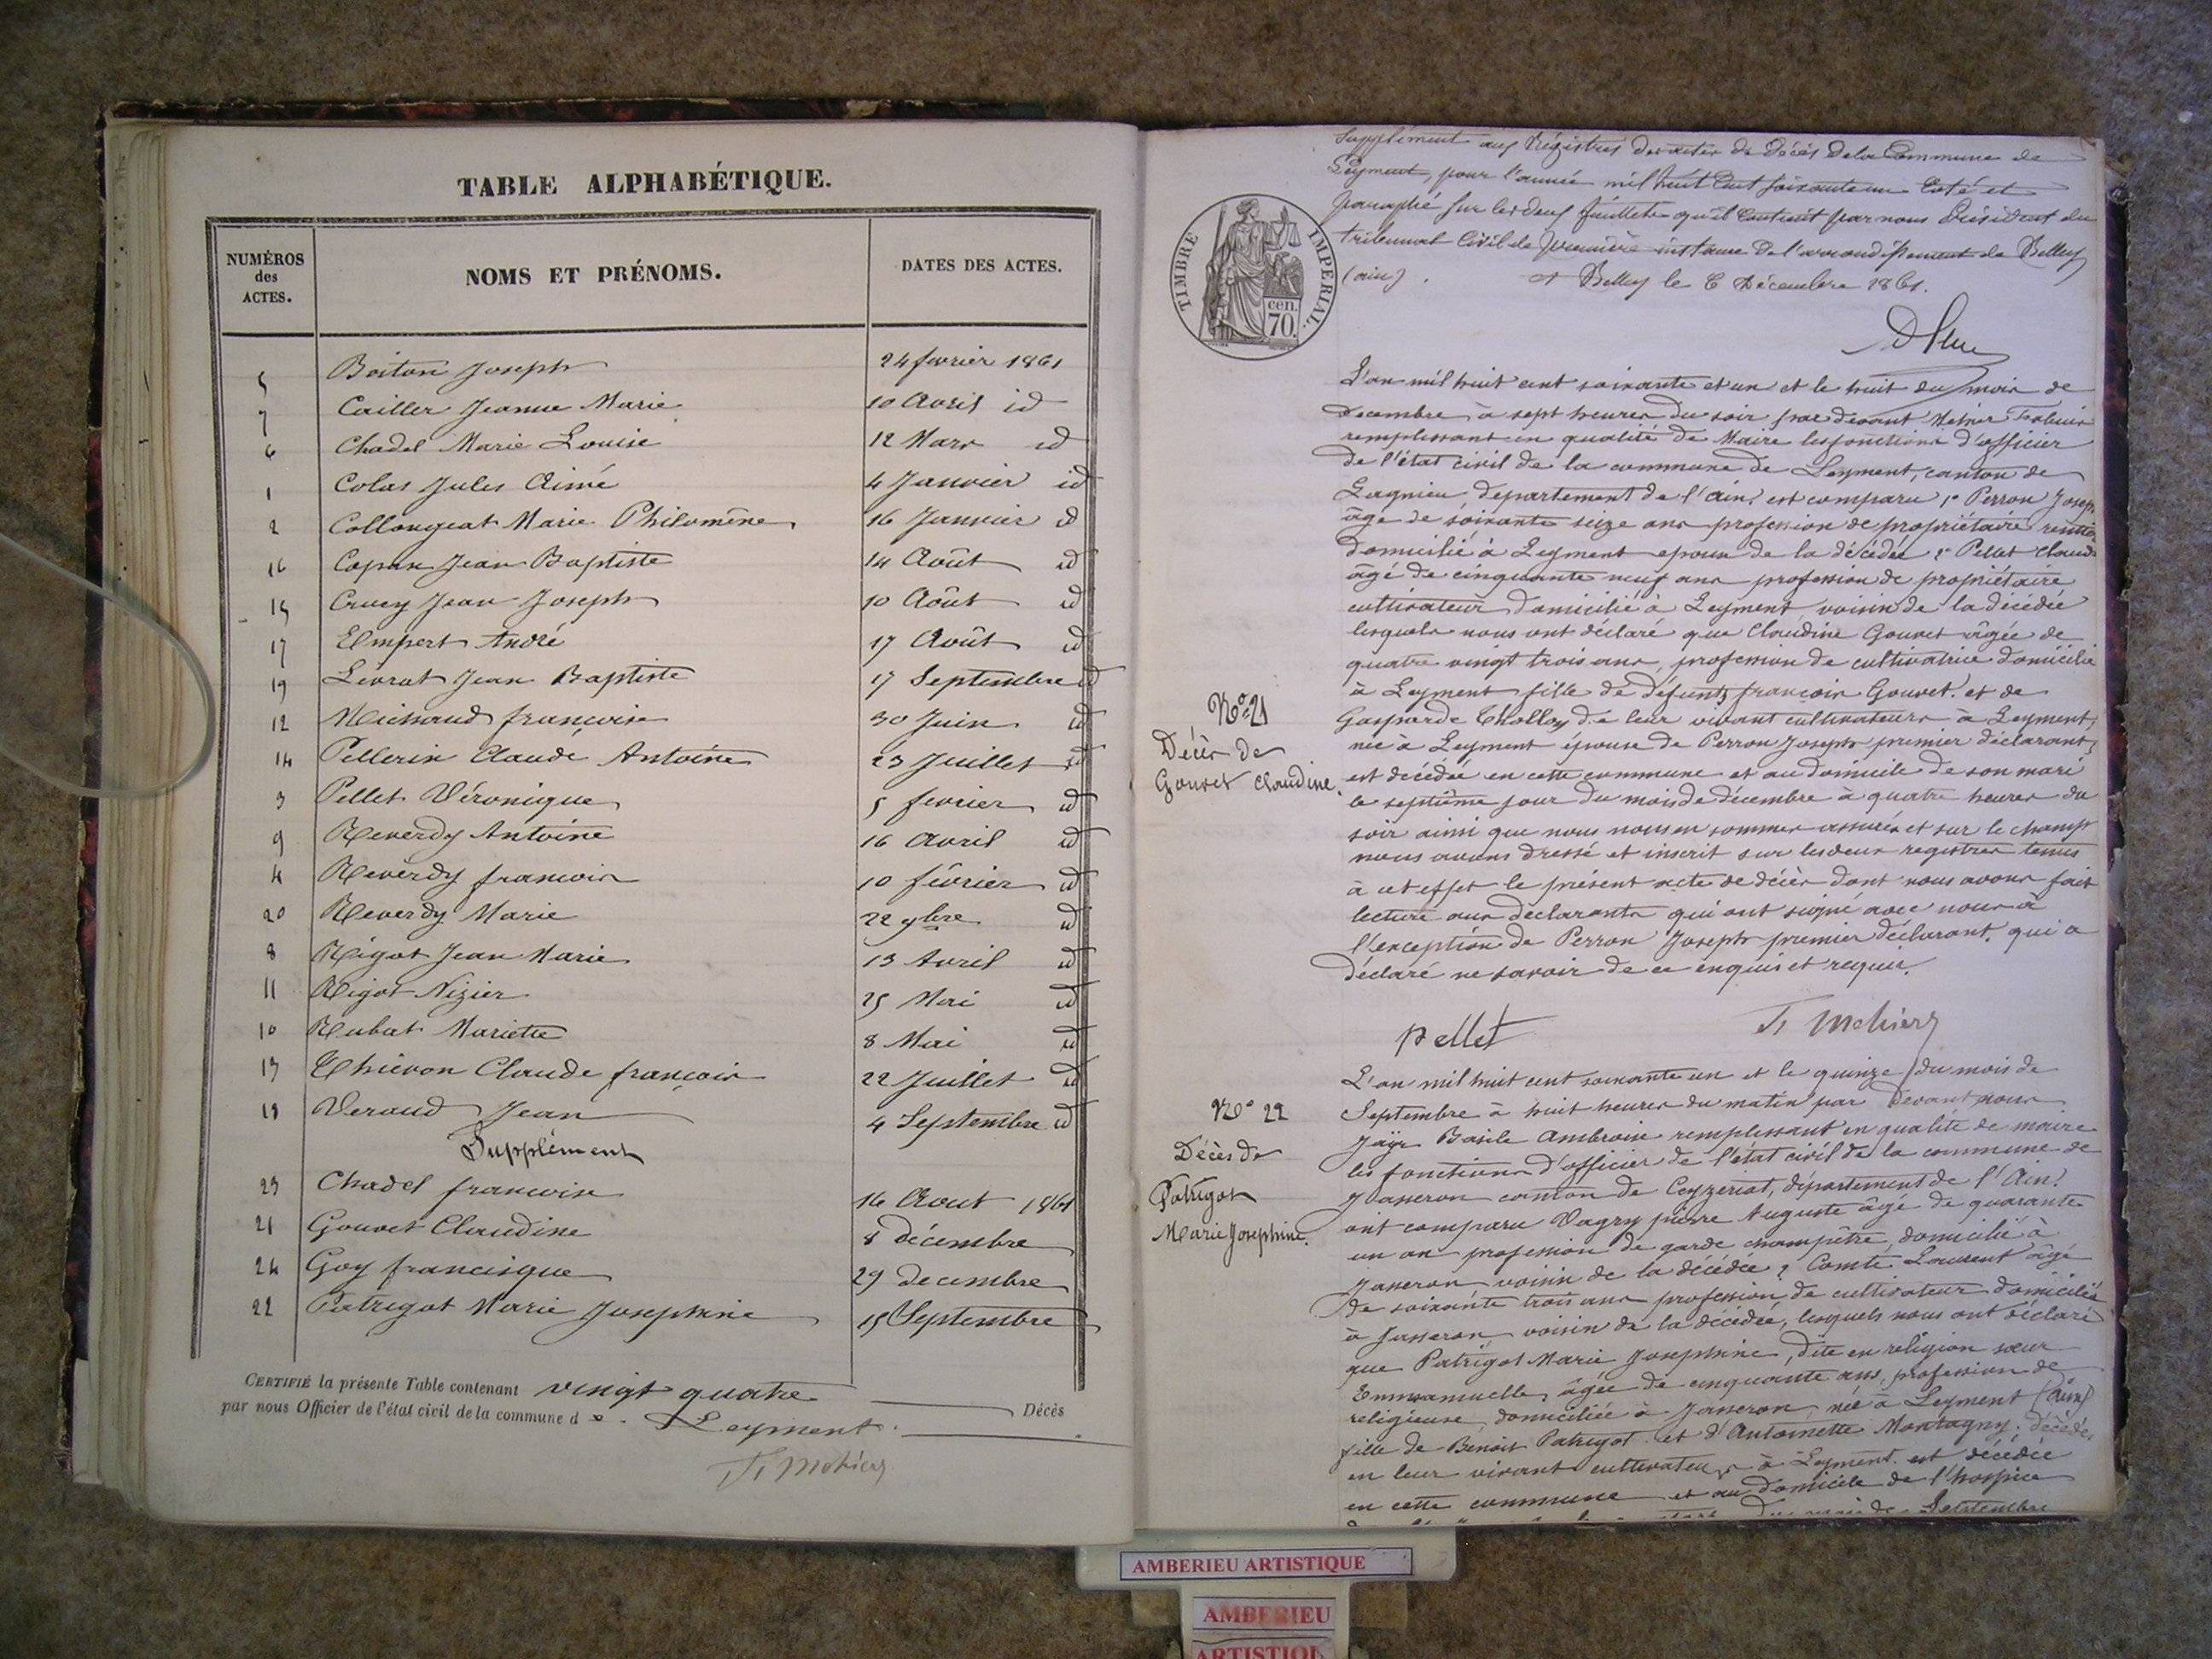 TABLE ALPHABÉTIQUE.
NUMÉROS
des
ACTES.
NOMS ET PRÉNOMS.
DATES DES ACTES.
5 Boiton Joseph 24 fevrier 1861
7 Cailler Jeanne Marie 10 Avril id
6 Chadel Marie Louise 12 Mars id
1 Colas Jules Aimé 4 Janvier id
2 Collongeat Marie Philomène 16 Janvier id
16 Jean Baptiste 14 Août id
15 Crucy Jean Joseph 10 Août id
17 Empert André 17 Août id
19 Levrat Jean Baptiste 17 Septembre id
12 Michaud francoise 30 Juin id
14 Pellerin Claude Antoine 23 Juillet id
3 Pellet Véronique 5 fevrier id
9 Reverdy Antoine 16 Avril id
4 Reverdy francois 10 février id
20 Reverdy Marie 22 9bre id
8 Rigot Jean Marie 13 Avril id
11 Rigot Nizier 25 Mai id
10 Rubat Mariette 8 Mai id
13 Thiévon Claude françois 22 Juillet id
18 Veraud Jean 4 Septembre id
Supplément
23 Chadel francoise 16 Aout 1861
21 Gouvet Claudine 8 décembre
24 Goy francisque 29 decembre
22 Patrigot Marie Josephine 15 Septembre
CERTIFIÉ la présente Table contenant vingt quatre Décès
par nous Officier de l'état civil de la commune de Leyment
TIMBRE IMPERIAL.
cen.
70.
Supplément aux Régistres des actes de Décès de la Commune de
Leyment, pour l'année mil huit Cent soixante un Coté et
paraphé sur les deux feuillets qu'il Contient par nous Président du
tribunal Civil de première instance de l'arrondissement de Belley
(ain). A Belley le 6 Décembre 1861.
N° 21
Décès de
Gouvet Claudine.
L'an mil huit cent soixante et un et le huit du mois de
Decembre à sept heures du soir par devant
remplissant en qualité de Maire les fonctions d'officier
de l'état civil de la commune de Leyment, canton de
Lagnieu departement de l'Ain? est comparu 1° Perron Joseph
âge de soixante seize ans profession de propriétaire rentier
Domicilié à Leyment epoux de la décédée 2° Pellet Claude
âgé de cinquante neuf ans profession de propriétaire
cultivateur domicilié à Leyment voisin de la décédée
lesquels nous ont déclaré que Claudine Gouvet âgée de
quatre vingt trois ans, profession de cultivatrice domicilié
à Leyment fille de défunts françois Gouvet et de
Gasparde Tholloy de leur vivant cultivateurs à Leyment,
née à Leyment épouse de Perron Joseph premier déclarant,
est décédée en cette commune et au domicile de son mari
le septième jour du mois de décembre à quatre heures du
soir ainsi que nous nous en sommes assurés et sur le champ
nous avons dressé et inscrit sur les deux registres tenus
à cet effet le présent acte de décès dont nous avons fait
lecture aux déclarants qui ont signé avec nous à
l'exception de Perron Joseph premier déclarant, qui a
déclaré ne savoir de ce enquis et requis.
Pellet
N° 22
Décès de
Patrigot
Marie Josephine.
L'an mil huit cent soixante un et le quinze du mois de
Septembre à huit heures du matin par devant nous
Jayr Basile Ambroise remplissant en qualité de maire
les fonctions d'officier de l'état civil de la commune de
Jasseron canton de Ceyzeriat, département de l'Ain?
ont comparu Vagry pierre Auguste âgé de quarante
un an profession de garde champêtre, domicilié à
Jasseron voisin de la décédée 2° Comte Laurent âgé
de soixante trois ans profession de cultivateur domicilié
à Jasseron voisin de la décédée, lesquels nous ont déclaré
que Patrigot Marie Josephine, dite en religion sœur
Emmanuelle, âgée de cinquante ans, profession de
religieuse, domiciliée à Jasseron née à Leyment (Ain)
fille de Benoit Patrigot et d'Antoinette Montagny, décédés
en leur vivant cultivateurs à Leyment. est décédée
en cette commune et au domicile de l'hospice
du mois de Septembre
AMBERIEU ARTISTIQUE
AMBERIEU